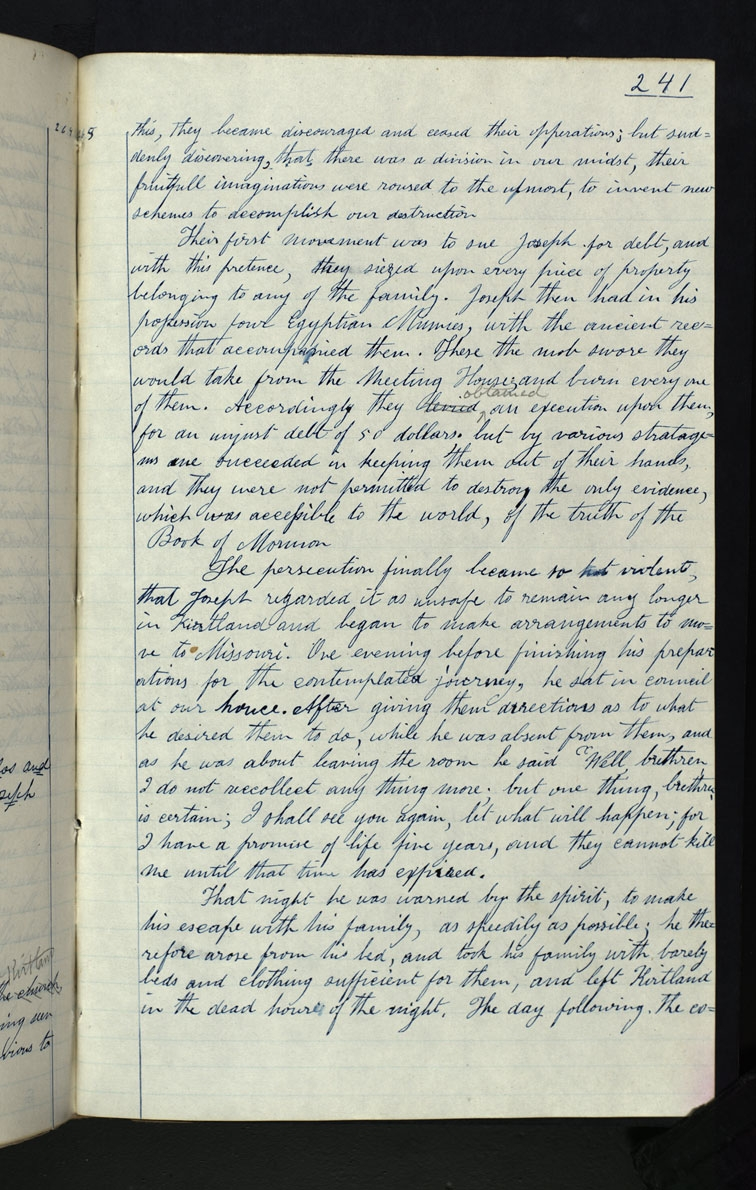 241
this, they became discouraged and ceased their opperations; but sud=
denly discovering, that, there was a division in our midst, their
fruitfull imaginations were roused to the upmost, to invent new
schemes to accomplish our destruction
Their first movement was to sue Joseph for debt, and
with this pretence, they siezed upon every piece of property
belonging to any of the family. Joseph then had in his
possession four Egyptian Mumies, with the ancient rec=
ords that accompanied them. These the mob swore they
would take from the Meeting House, and burn every one
obtained
of them. Accordingly they levied an execution upon them,
for an unjust debt of 50 dollars. but by various stratage=
ms we succeeded in keeping them out of their hands,
and they were not permitted to destroy the only evidence,
which was accessible to the world, of the truth of the
Book of Mormon
The persecution finally became so hot violent,
that Joseph regarded it as unsafe to remain any longer
in Kirtland and began to make arrangements to mo=
ve to Missouri. One evening before finishing his prepar=
ations for the contemplated journey, he sat in council
at our house. After giving them directions as to what
he desired them to do, while he was absent from them, and
as he was about leaving the room he said "Well brethren,
I do not recollect any thing more; but one thing, brethren
is certain; I shall see you again, let what will happen; for
I have a promise of life five years, and they cannot kill
me until that time has expired.
That night he was warned by the spirit, to make
his escape with his family, as speedily as possible; he the=
refore arose from his bed, and took his family with barely
beds and clothing sufficient for them, and left Kirtland
in the dead hour of the night. The day following. The co=
and
Kirtland
the church
ing
vious to